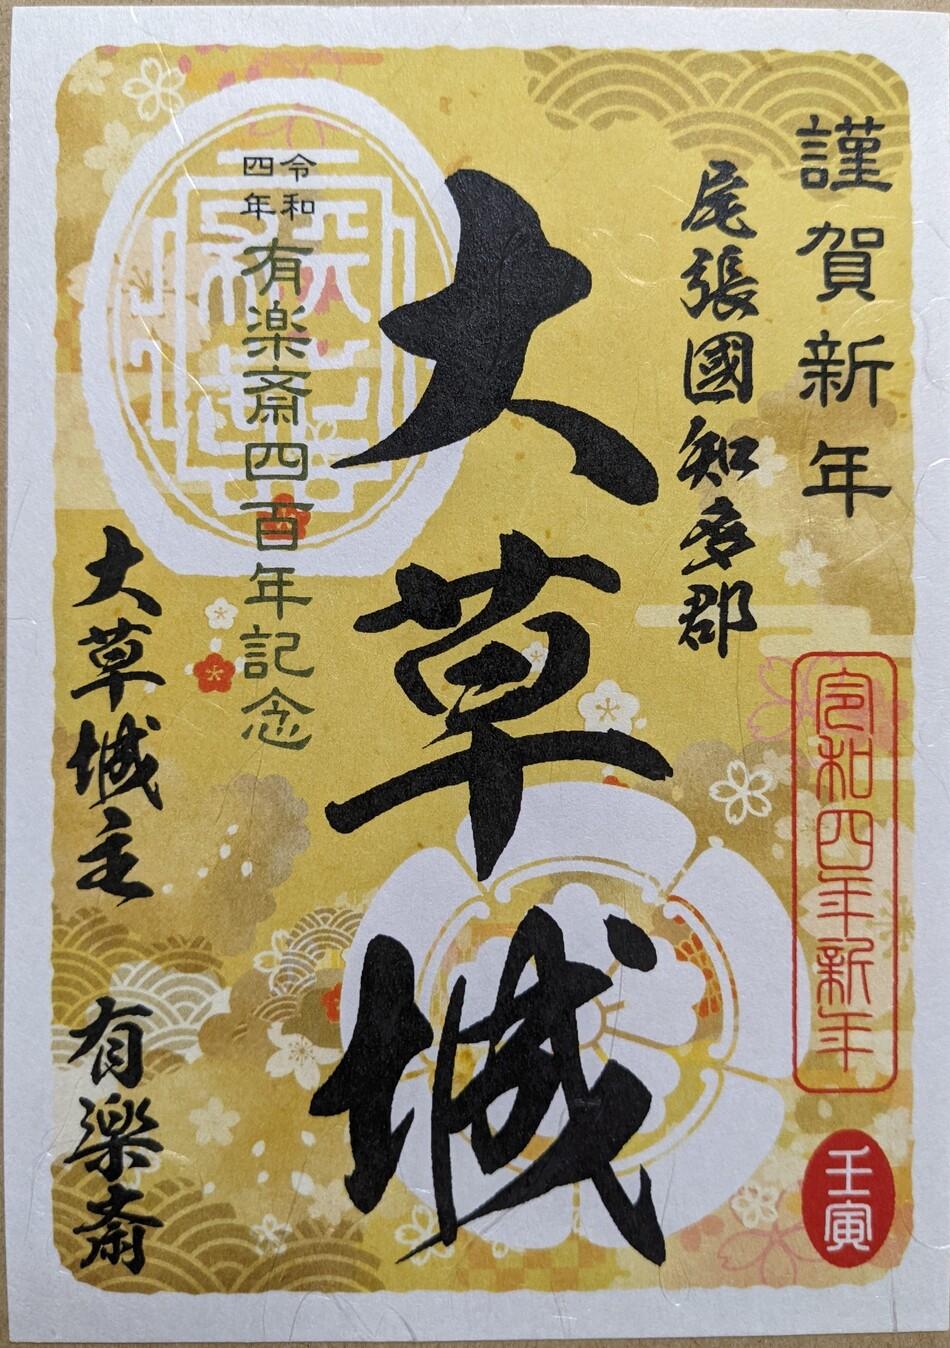 謹賀新年
尾張國知多郡
大草城
令和四年
有楽斎四百年記念
大草城主
有楽斎
令和四年新年
壬寅